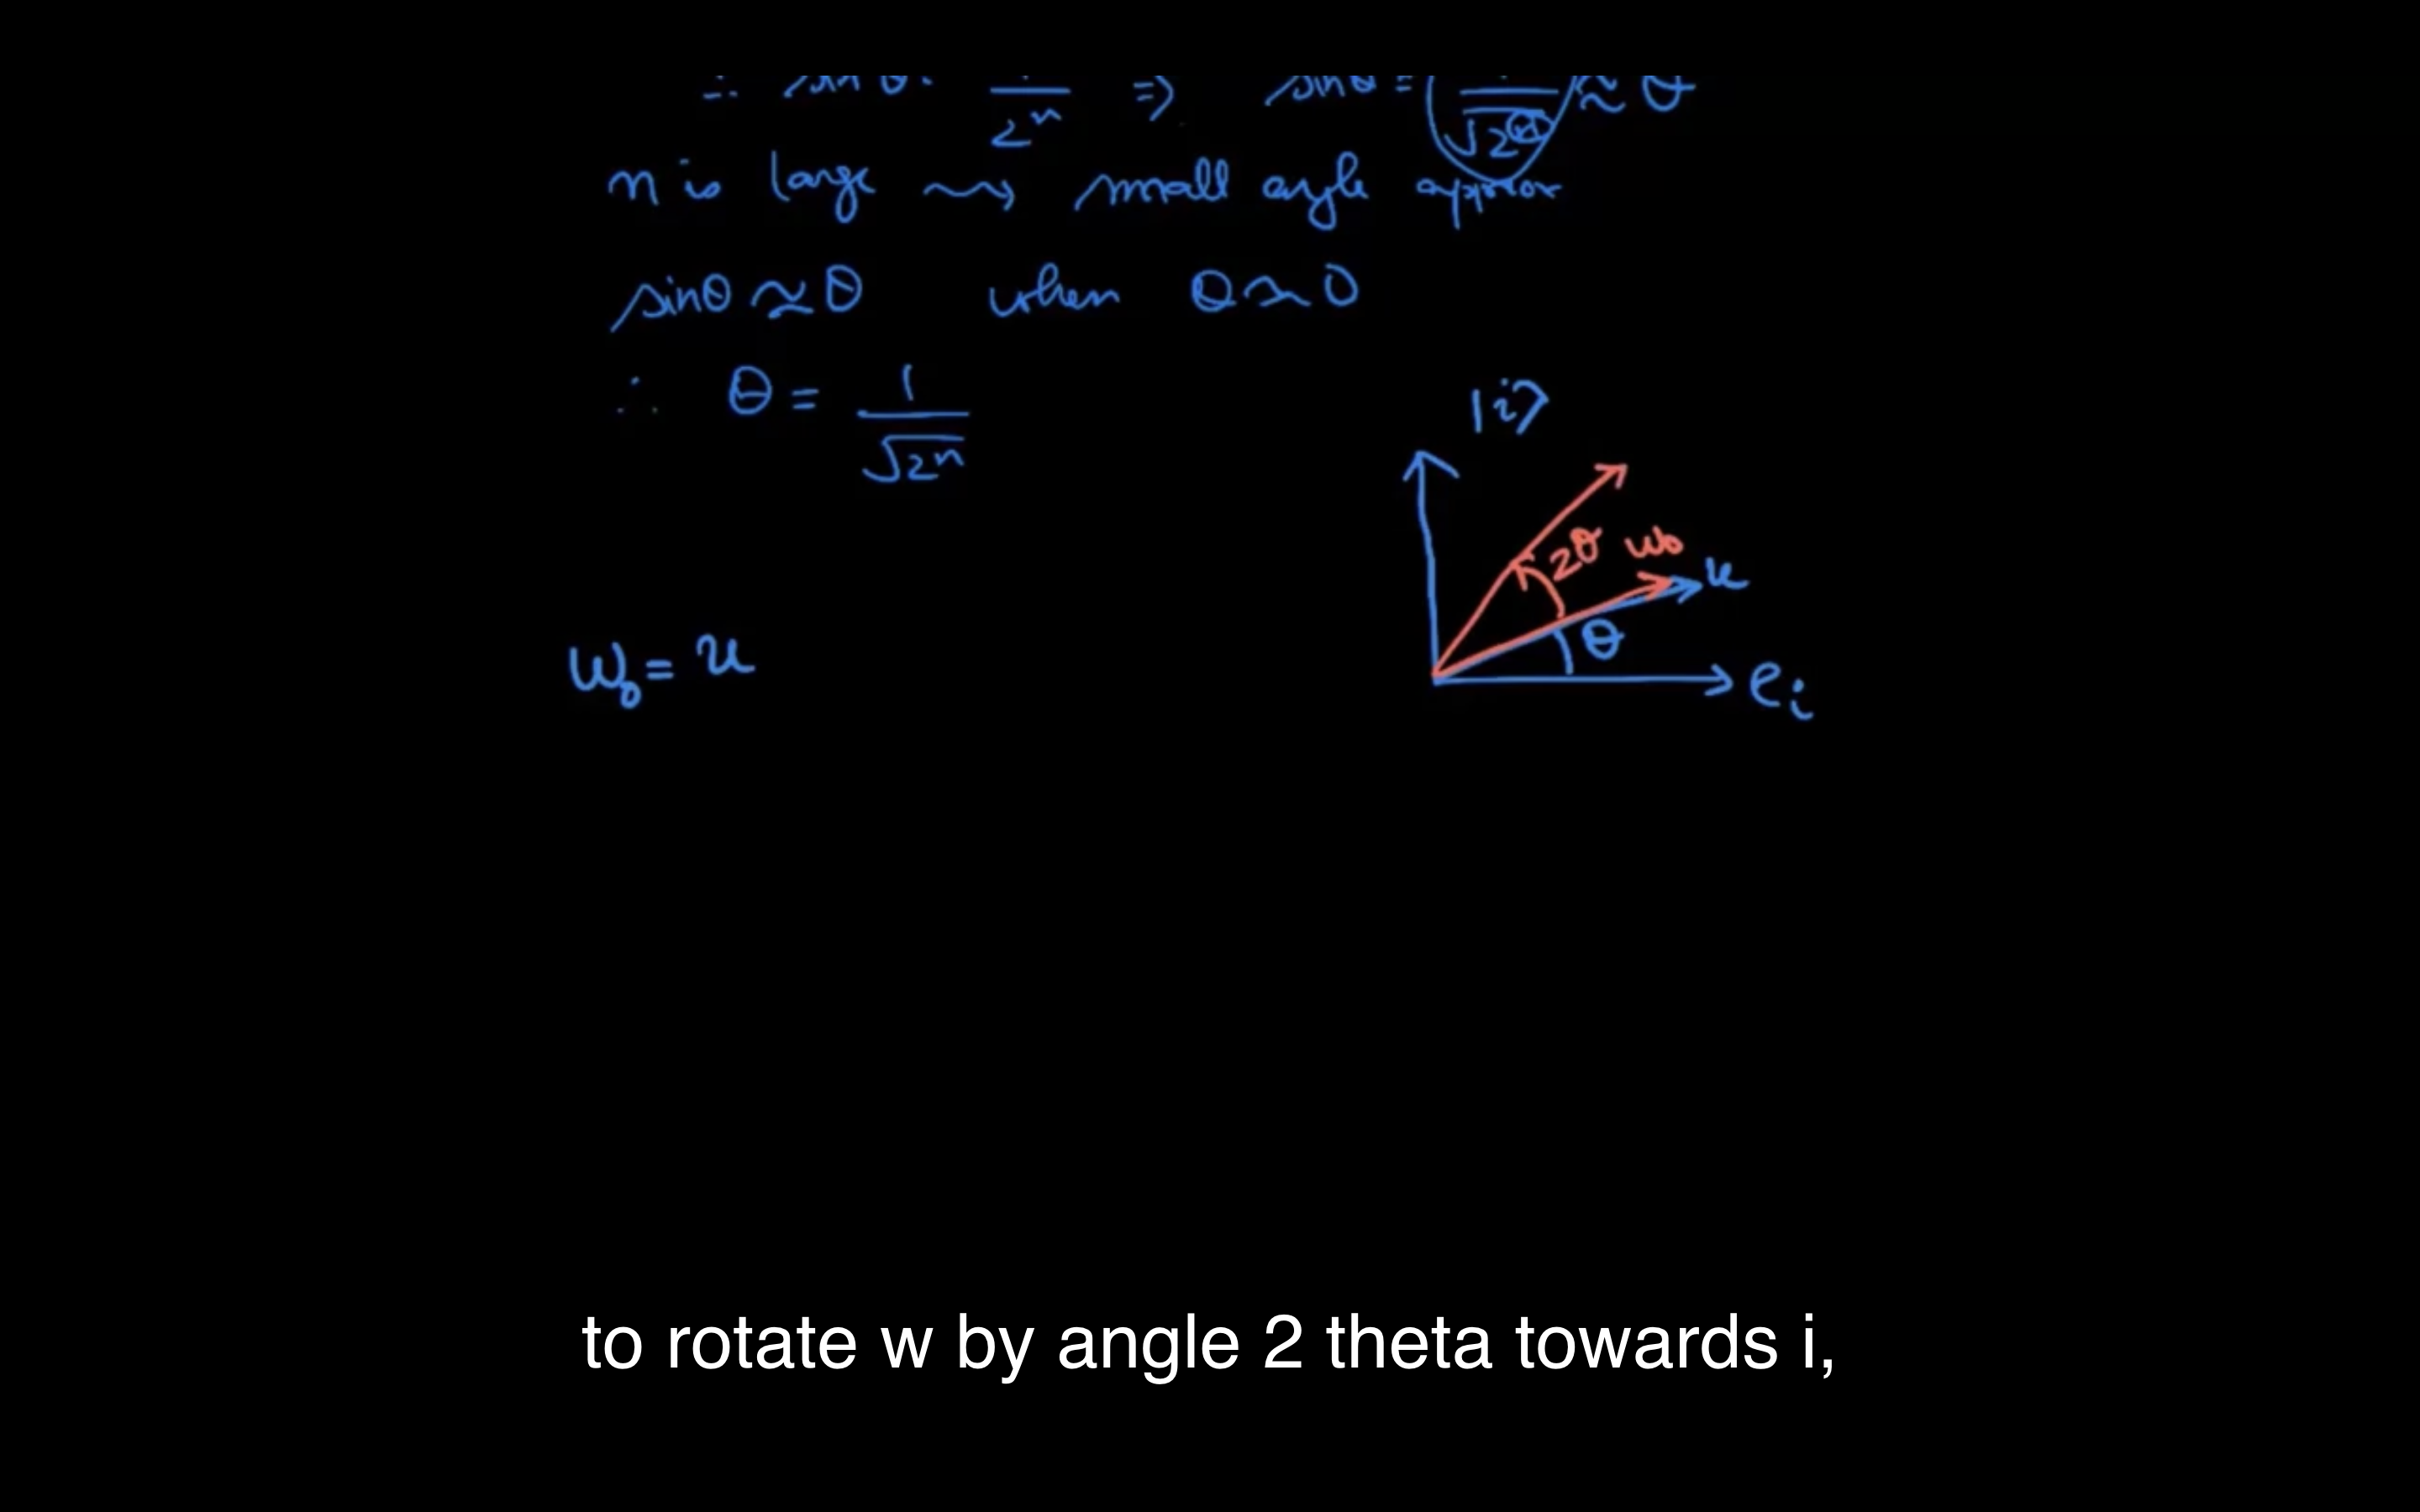 ∴ sinθ = 1/2ⁿ ⇒ sinθ = 1/√2ⁿ ≈ θ
n is large ⇝ small angle approx
sinθ ≈ θ when θ ≈ 0
∴ θ = 1/√2ⁿ
|i⟩
2θ w₀ u
θ
eᵢ
w₀ = u
to rotate w by angle 2 theta towards i,